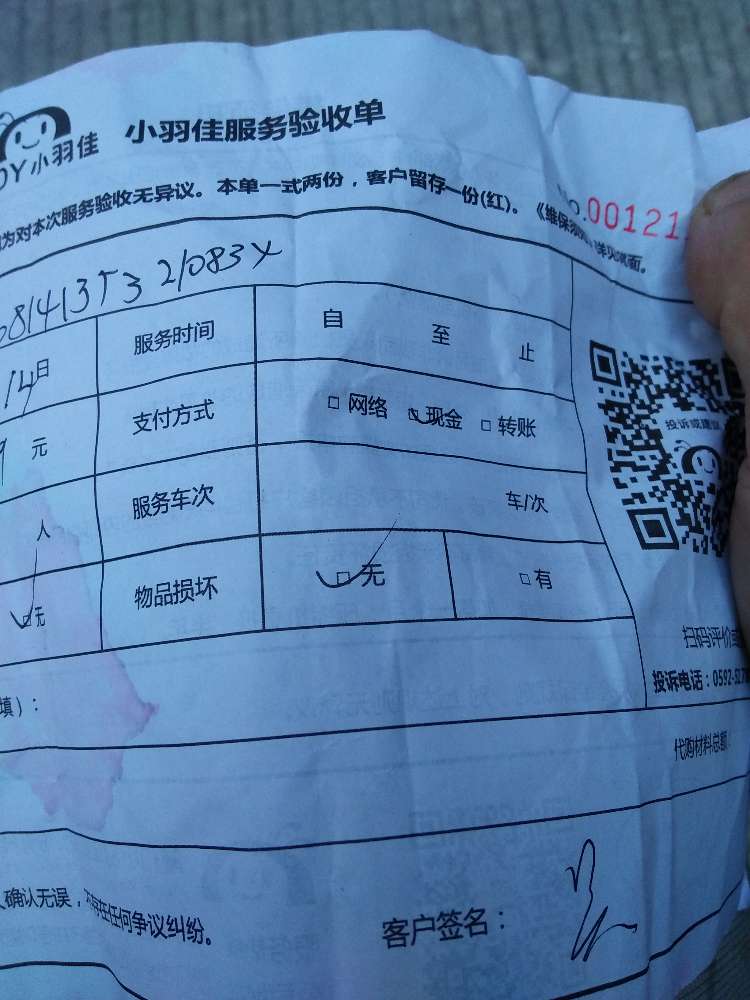 小羽佳
小羽佳服务验收单
为对本次服务验收无异议。本单一式两份，客户留存一份(红)。
NO.00121
81413753210834
14日 服务时间 自 至 止
元 支付方式 □ 网络 □ 现金 □ 转账
人 服务车次 车/次
□无 物品损坏 □ 无 □ 有
投诉或建议
扫码评价
投诉电话：0592-52
填）：
代购材料总额：
确认无误，不存在任何争议纠纷。
客户签名：